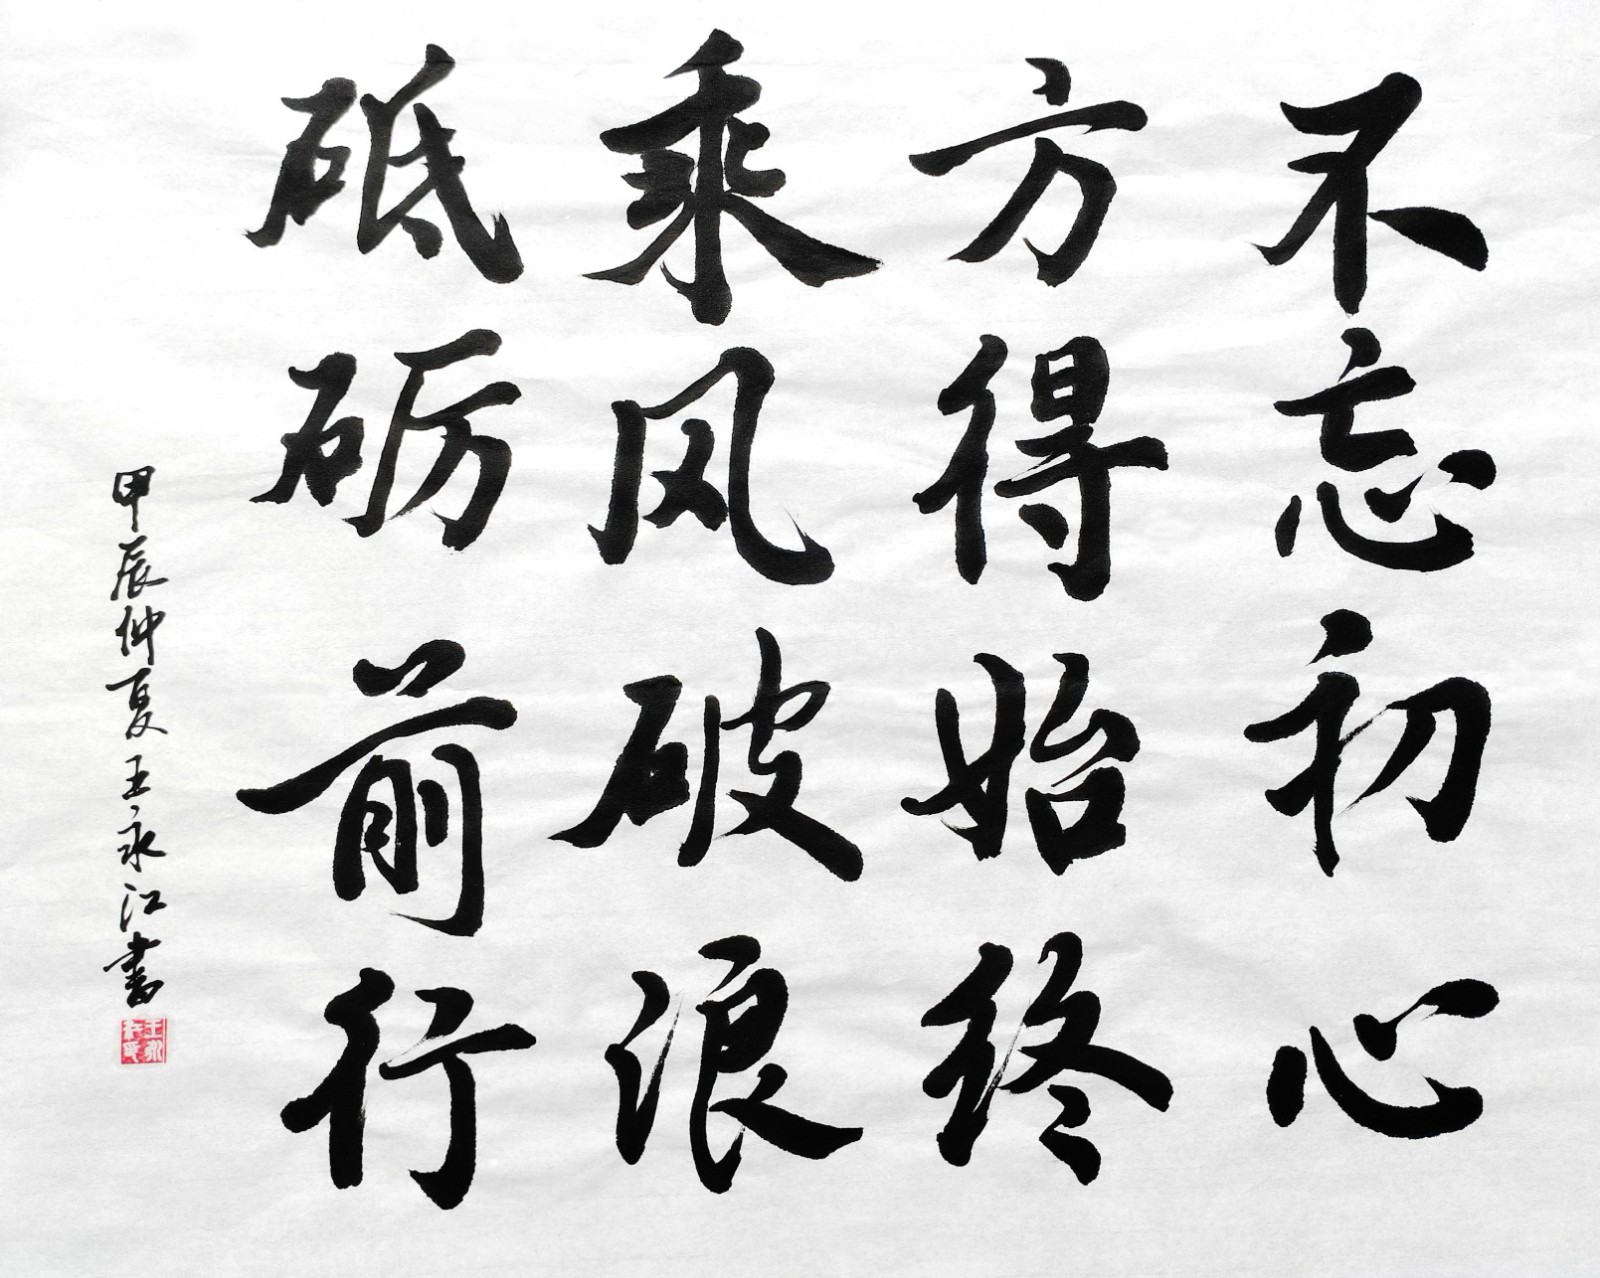 不忘初心
方得始终
乘风破浪
砥砺前行
甲辰仲夏王永江書